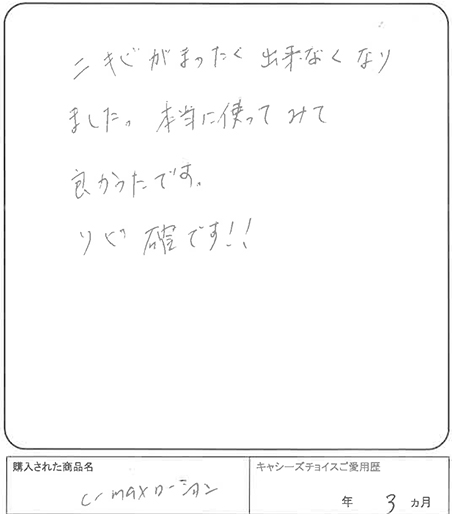 ニキビがまったく出来なくなり
ました。本当に使ってみて
良かったです。
リピ確です!!
購入された商品名
C-maxローション
キャシーズチョイスご愛用歴
年 3 ヵ月